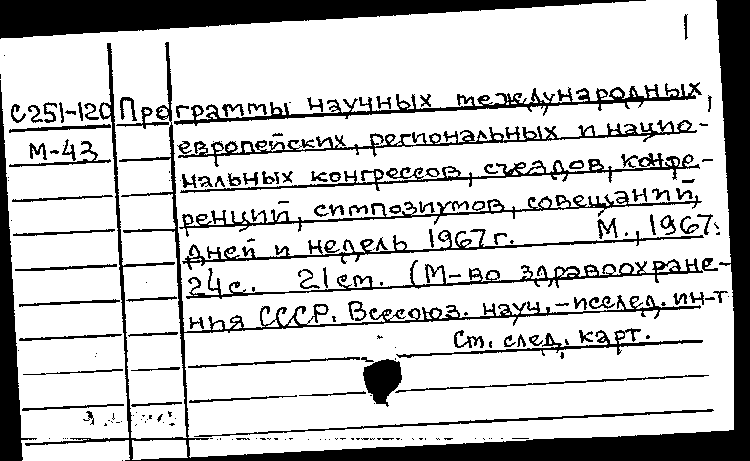 1
С251-120 Программы научных международных,
М-43 европейских, региональных и нацио-
нальных конгрессов, съездов, конфе-
ренций, симпозиумов, совещаний,
дней и недель 1967г. М., 1967.
24с. 21см. (М-во здравоохране-
ния СССР. Всесоюз. науч.-исслед. ин-т
См. след. карт.